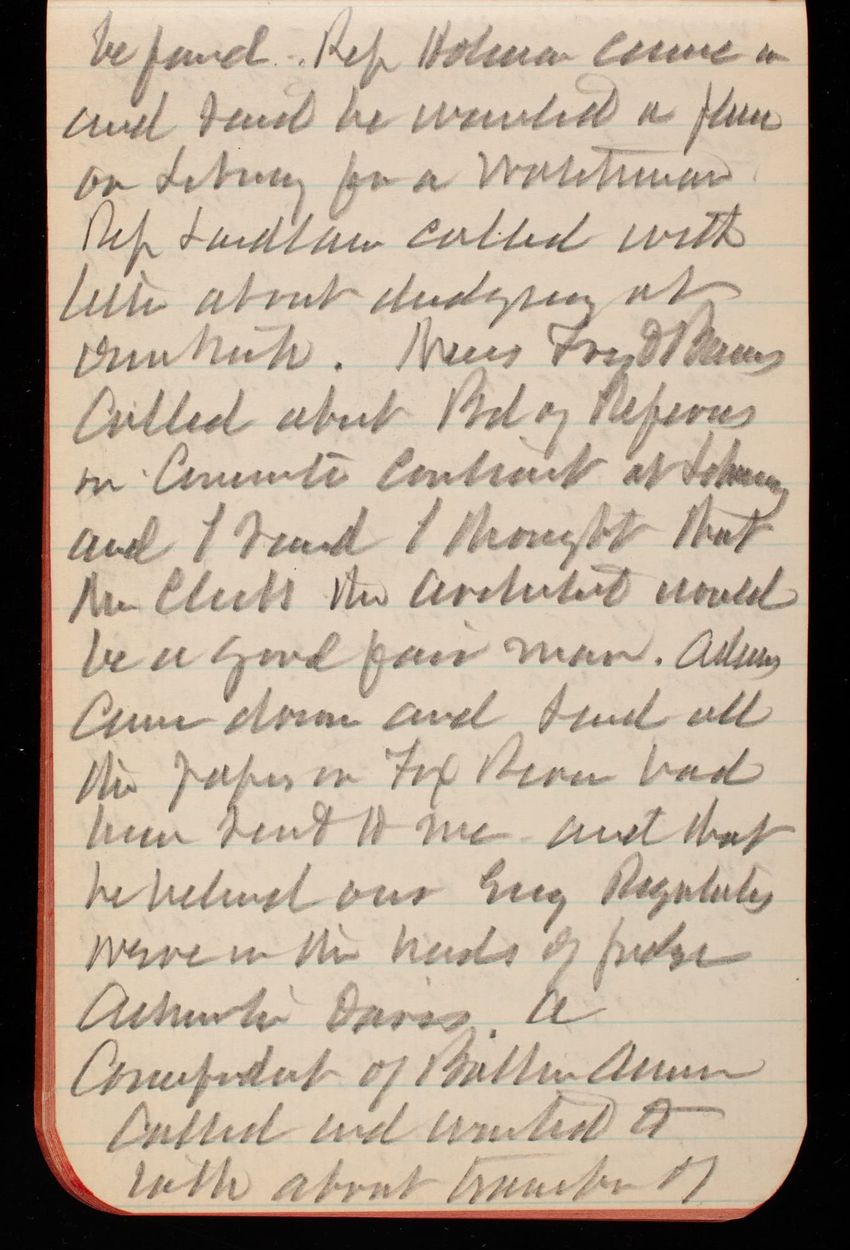 be found. Rep Holman came in
and said he wanted a place
on Library for a Watchman
Rep Laidlaw called with
letter about dredging at
Called about Bd of Referees
on Concrete Contract at Library
and I said I thought that
Mr Clark the architect would
be a good fair man. Adams
Came down and said all
the papers on Fox River had
been sent to me and that
he believed our Eng Regulates
were in the hands of Judge
Davis. A
Correspondent of Baltimore American
Called and wanted to
talk about transfer of